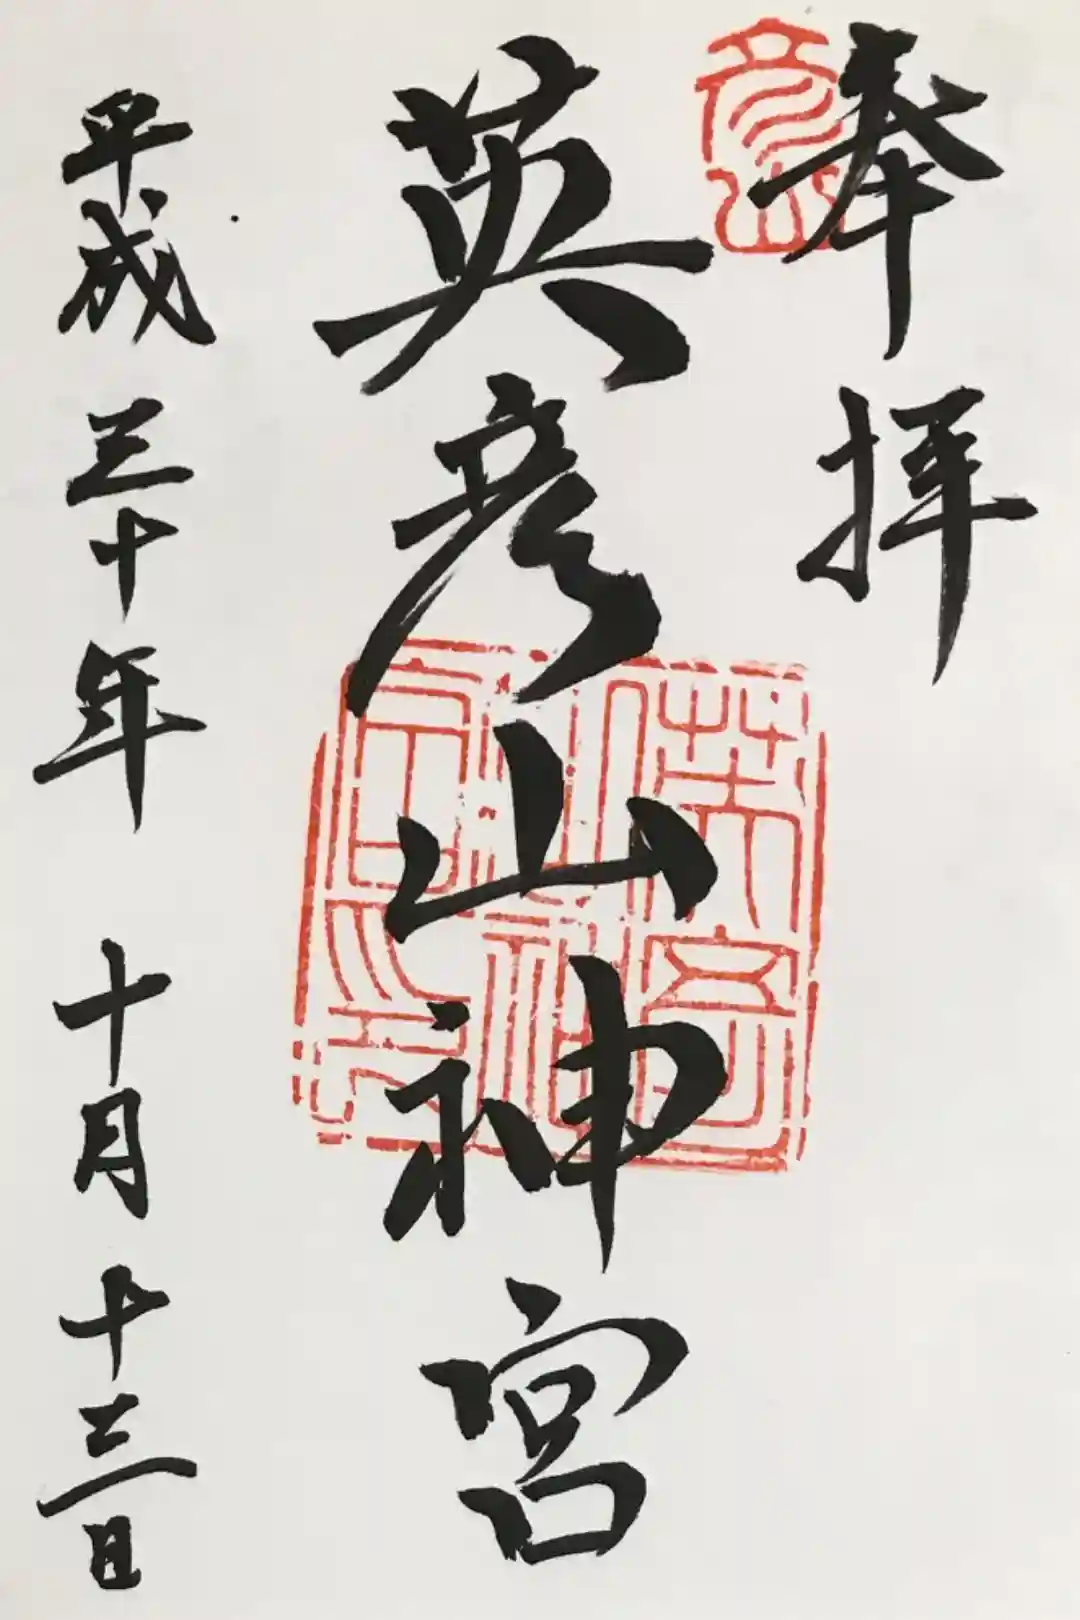 奉拝
英彦山神宮
平成三十年 十月十三日